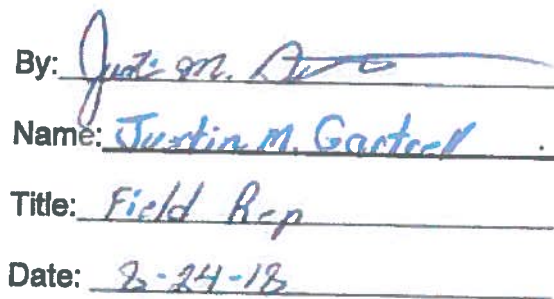 By: Justin M.
Name: Justin M.
Title: Field Rep
Date: 8-24-18